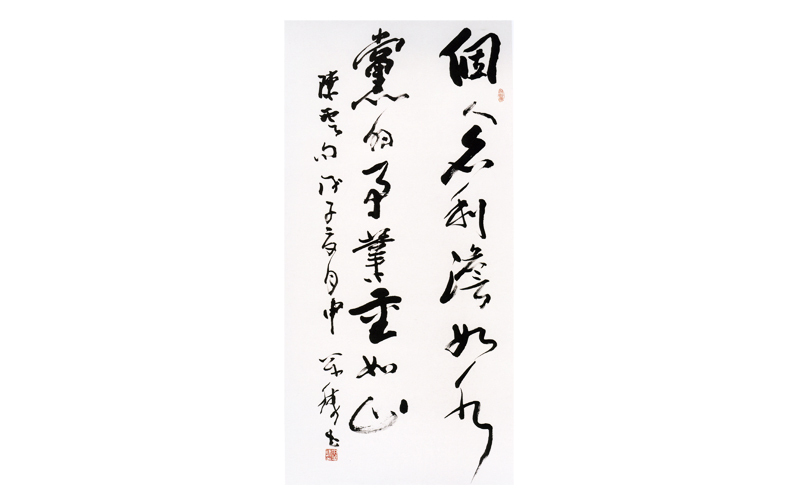 個人名利澹如水
黨的事業重如山
陳雲句戊子夏月中